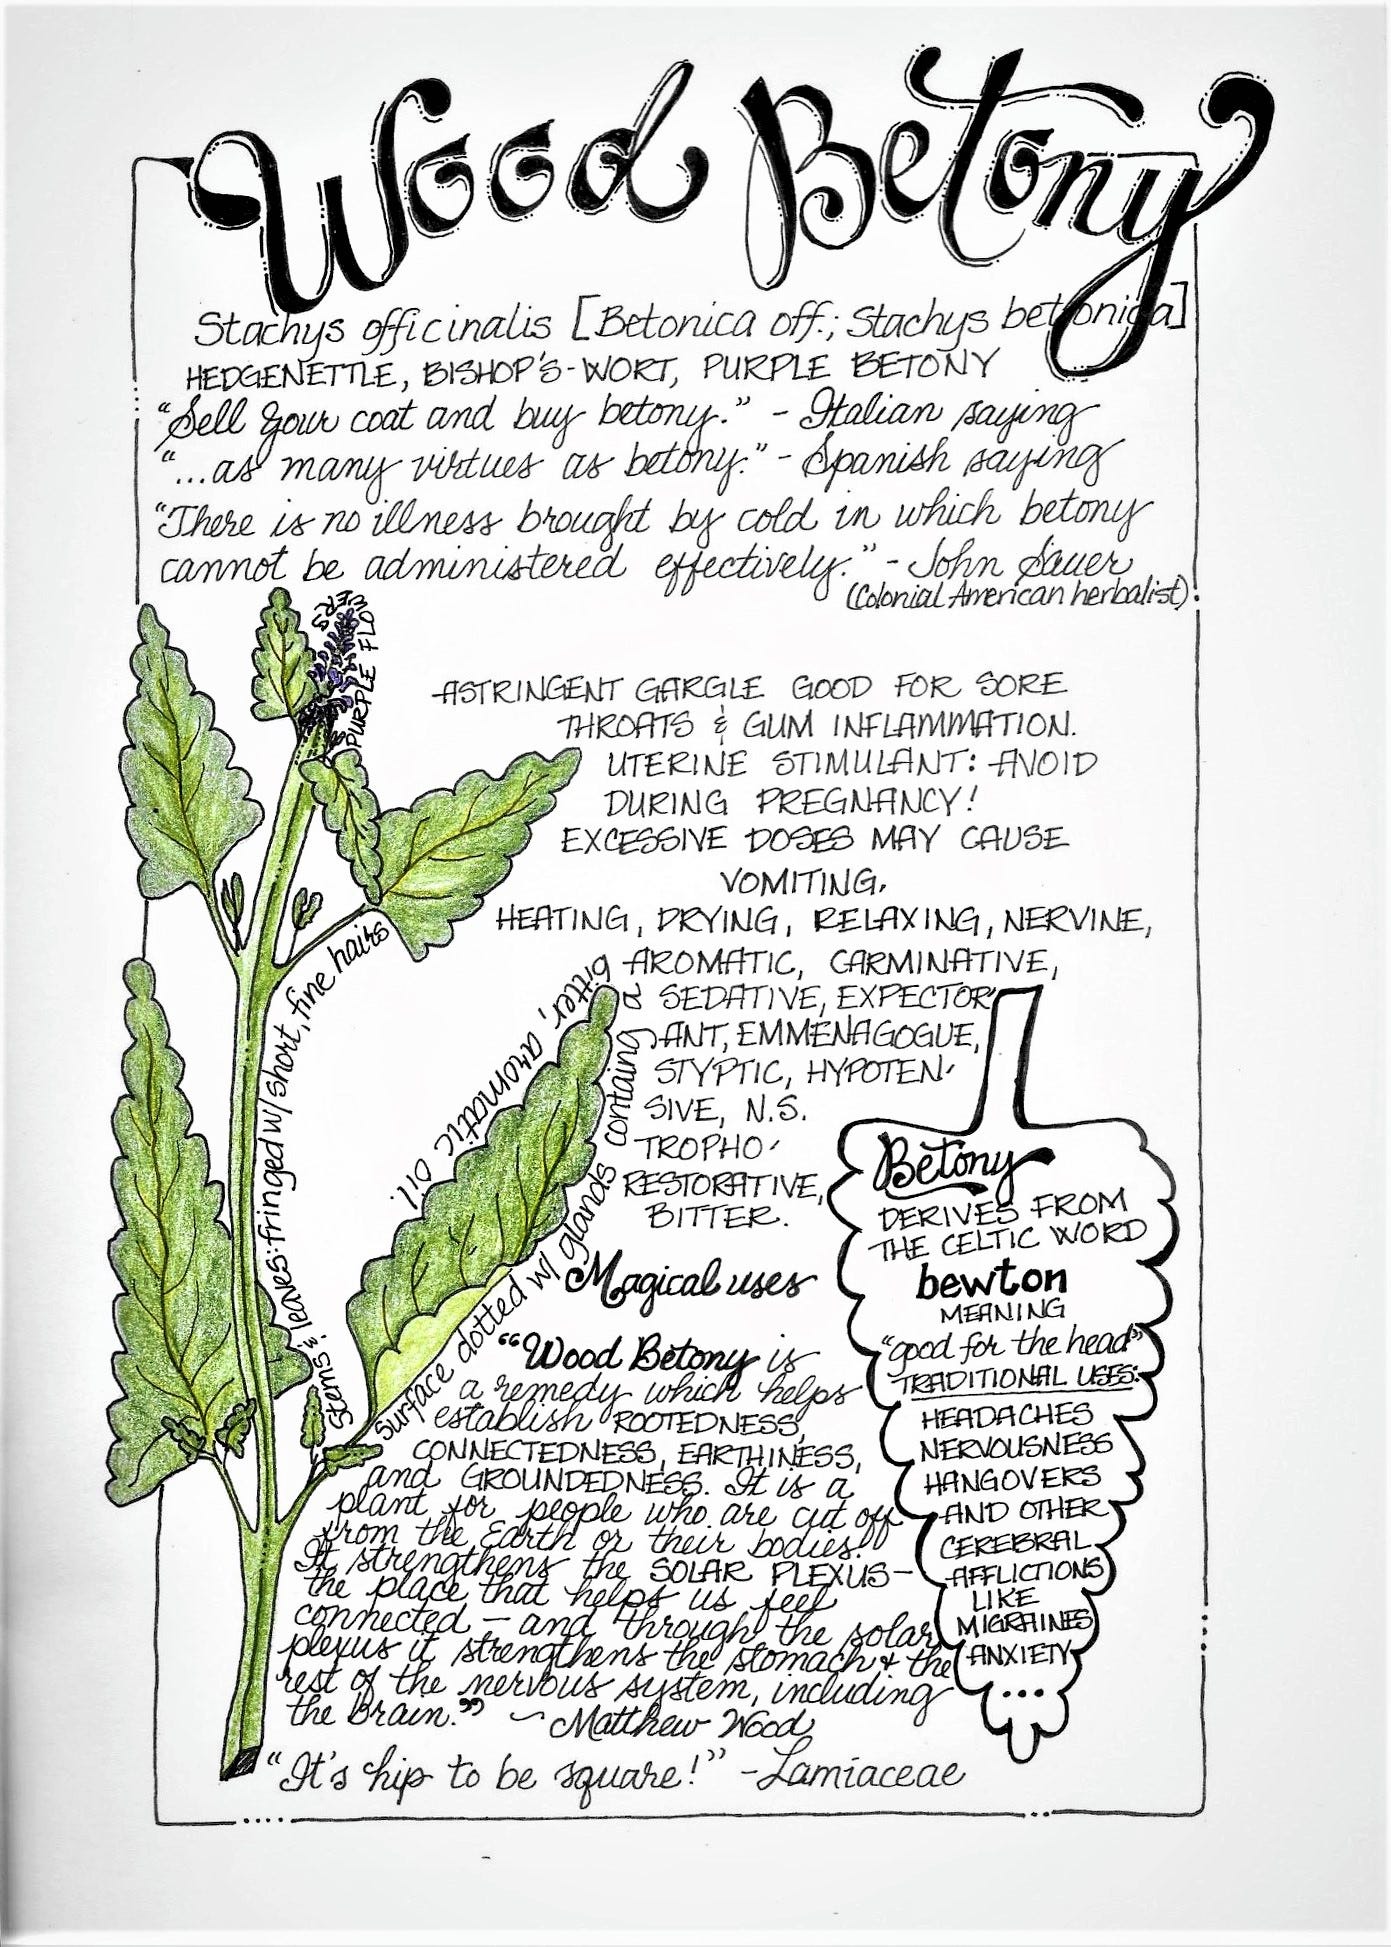 Wood Betony
Stachys officinalis [Betonica off.; Stachys betonica]
HEDGENETTLE, BISHOP'S-WORT, PURPLE BETONY
"Sell your coat and buy betony." - Italian saying
"...as many virtues as betony." - Spanish saying
"There is no illness brought by cold in which betony
cannot be administered effectively." - John Sauer
(Colonial American herbalist)
PURPLE FLOW
ERS
ASTRINGENT GARGLE GOOD FOR SORE
THROATS & GUM INFLAMMATION.
UTERINE STIMULANT: AVOID
DURING PREGNANCY!
EXCESSIVE DOSES MAY CAUSE
VOMITING.
HEATING, DRYING, RELAXING, NERVINE,
AROMATIC, CARMINATIVE,
SEDATIVE, EXPECTOR-
ANT, EMMENAGOGUE,
STYPTIC, HYPOTEN-
SIVE, N.S.
TROPHO-
RESTORATIVE,
BITTER.
Stems & leaves: fringed w/ short, fine hairs
Surface dotted w/ glands containing a
bitter, aromatic oil.
Magical uses
"Wood Betony is
a remedy which helps
establish ROOTEDNESS,
CONNECTEDNESS, EARTHINESS,
and GROUNDEDNESS. It is a
plant for people who are cut off
from the Earth or their bodies!
It strengthens the SOLAR PLEXUS-
the place that helps us feel
connected - and through the solar
plexus it strengthens the stomach & the
rest of the nervous system, including
the Brain." ~ Matthew Wood
"It's hip to be square!" -Lamiaceae
Betony
DERIVES FROM
THE CELTIC WORD
bewton
MEANING
"good for the head"
TRADITIONAL USES:
HEADACHES
NERVOUSNESS
HANGOVERS
AND OTHER
CEREBRAL
AFFLICTIONS
LIKE
MIGRAINES
ANXIETY
...